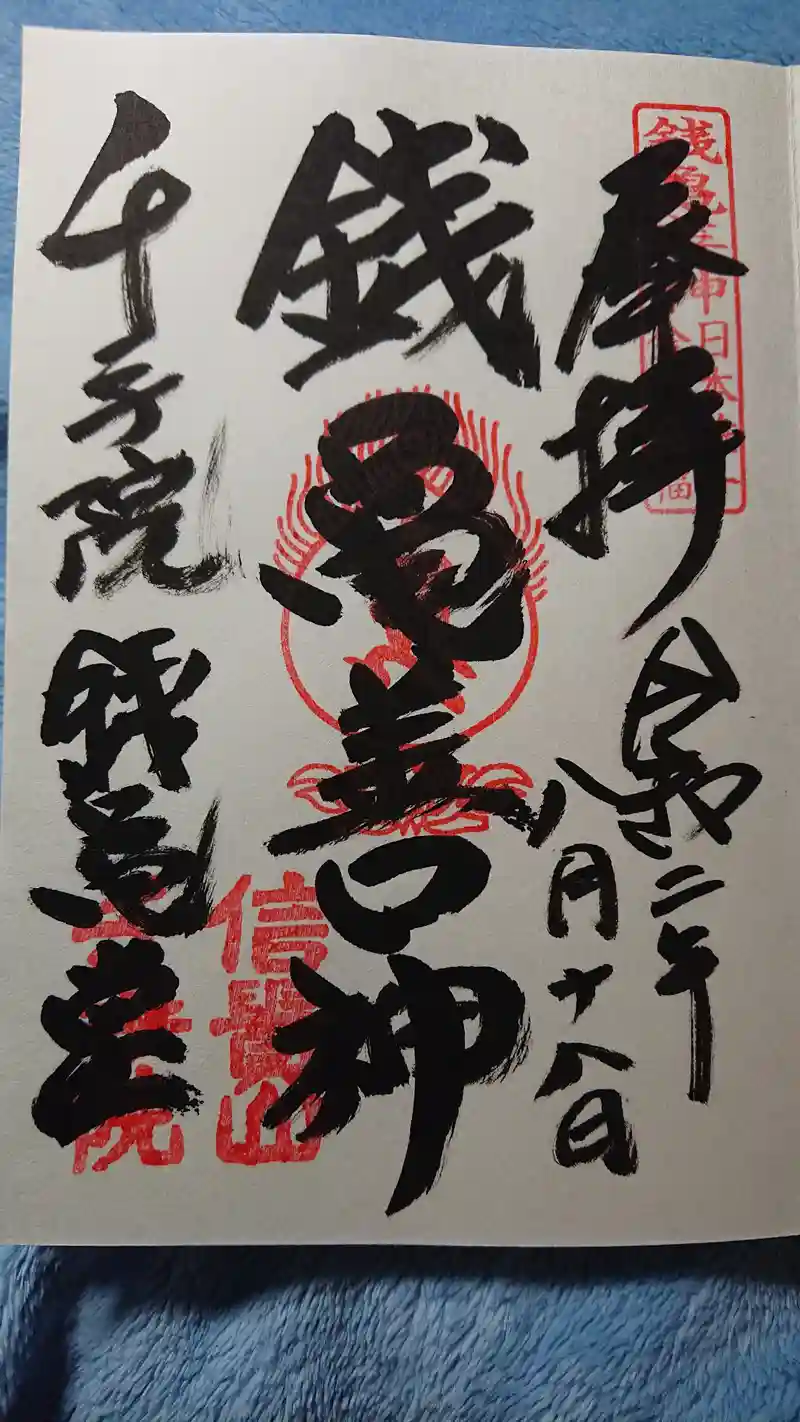 奉拝
令和二年
八月十八日
銭亀善神
千手院
銭亀堂
銭亀善神日本
信貴山
千手院